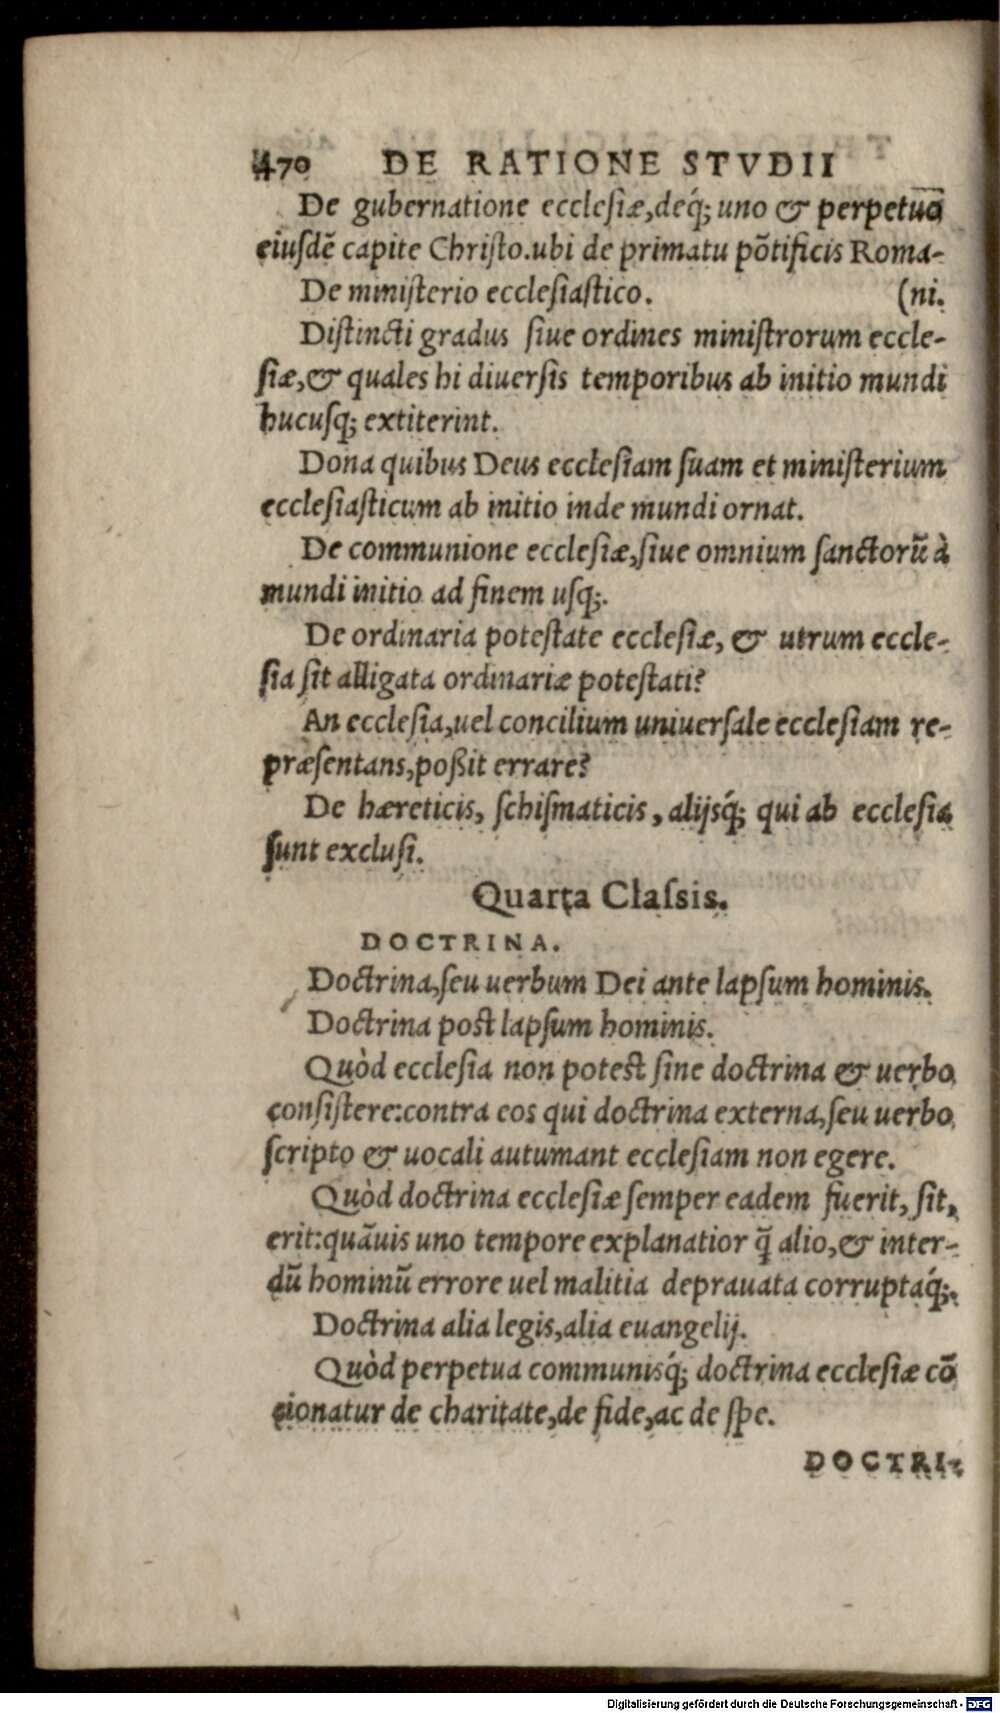 470 DE RATIONE STVDII
De gubernatione ecclesiæ, deq́; uno & perpetuo
eiusdẽ capite Christo. ubi de primatu põtificis Roma-
De ministerio ecclesiastico. (ni.
Distincti gradus siue ordines ministrorum eccle-
siæ, & quales hi diuersis temporibus ab initio mundi
hucusq; extiterint.
Dona quibus Deus ecclesiam suam et ministerium
ecclesiasticum ab initio inde mundi ornat.
De communione ecclesiæ, siue omnium sanctorũ à
mundi initio ad finem usq;.
De ordinaria potestate ecclesiæ, & utrum eccle-
sia sit alligata ordinariæ potestati?
An ecclesia, uel concilium uniuersale ecclesiam re-
præsentans, poßit errare?
De hæreticis, schismaticis, alijsq́; qui ab ecclesia
sunt exclusi.
Quarta Classis.
DOCTRINA.
Doctrina, seu uerbum Dei ante lapsum hominis.
Doctrina post lapsum hominis.
Quòd ecclesia non potest sine doctrina & uerbo
consistere: contra eos qui doctrina externa, seu uerbo
scripto & uocali autumant ecclesiam non egere.
Quòd doctrina ecclesiæ semper eadem fuerit, sit,
erit: quãuis uno tempore explanatior q̃ alio, & inter-
dũ hominũ errore uel malitia deprauata corruptaq́;.
Doctrina alia legis, alia euangelij.
Quòd perpetua communisq́; doctrina ecclesiæ cõ
cionatur de charitate, de fide, ac de spe.
DOCTRI-
Digitalisierung gefördert durch die Deutsche Forschungsgemeinschaft - DFG